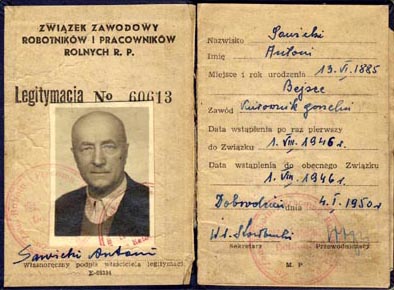 ZWIĄZEK ZAWODOWY
ROBOTNIKÓW I PRACOWNIKÓW
ROLNYCH R. P.
Legitymacja No 60613
Sawicki Antoni
Własnoręczny podpis właściciela legitymacji
Nazwisko Sawicki
Imię Antoni
Miejsce i rok urodzenia 13.VI.1885
Bejsce
Zawód Kierownik gorzelni
Data wstąpienia po raz pierwszy
do Związku 1.VIII.1946 r.
Data wstąpienia do obecnego Związku
1.VIII.1946 r.
Dobrodzień dnia 4.I.1950 r.
Sekretarz Przewodniczący
M. P.